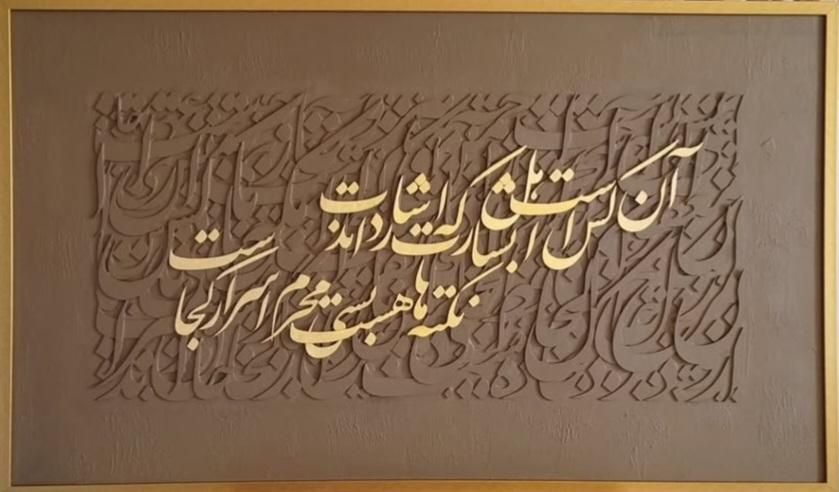 آن کس است اهل بشارت که اشارت داند
نکته‌ها هست بسی محرم اسرار کجاست